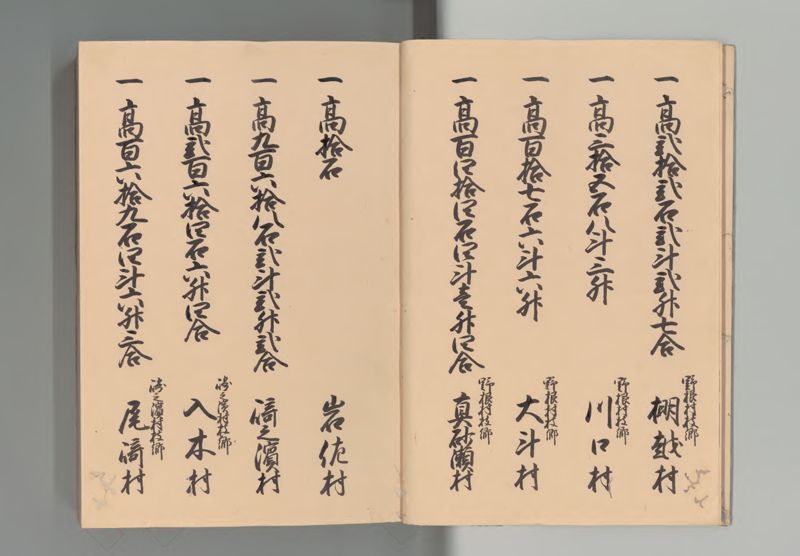 一高弐拾弐石弐斗弐升七合
野根村枝郷
棚越村
一高三拾五石八斗三升
野根村枝郷
川口村
一高百拾七石六斗六升
野根村枝郷
大斗村
一高百四拾四石四斗壱升四合
野根村枝郷
真砂瀬村
一高拾石
岩佐村
一高九百六拾八石弐斗弐升弐合
﨑之濱村
一高弐百六拾四石六升四合
﨑之濱村枝郷
入木村
一高百六拾九石四斗六升三合
﨑之濱村枝郷
尾﨑村